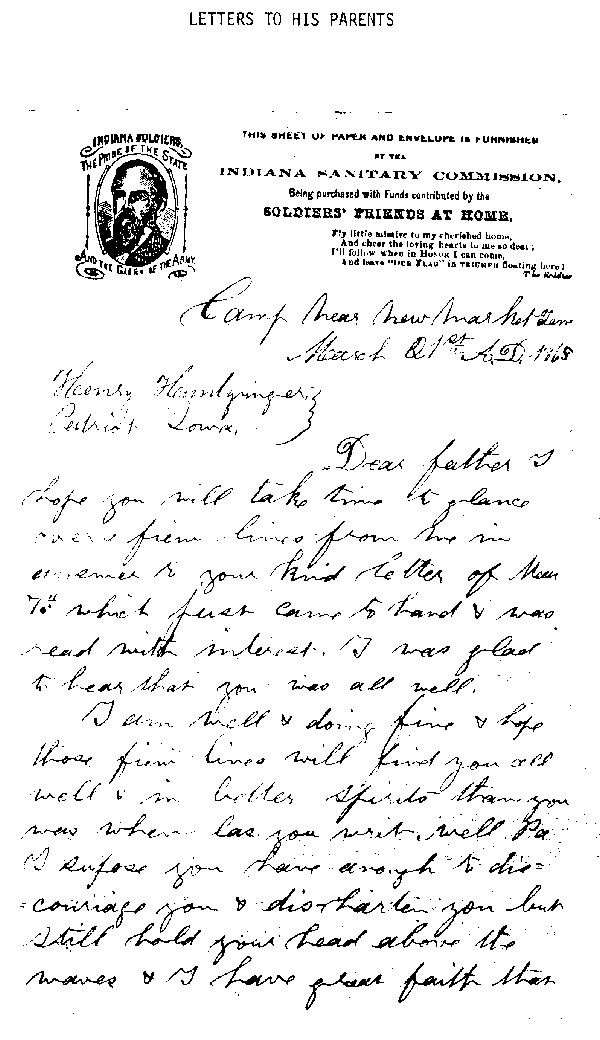 LETTERS TO HIS PARENTS
INDIANA SOLDIERS,
THE PRIDE OF THE STATE
AND THE GLORY OF THE ARMY.
THIS SHEET OF PAPER AND ENVELOPE IS FURNISHED
BY THE
INDIANA SANITARY COMMISSION,
Being purchased with Funds contributed by the
SOLDIERS' FRIENDS AT HOME,
Fly little missive to my cherished home,
And cheer the loving hearts to me so dear;
I'll follow when in Honor I can come,
And leave "OUR FLAG" in TRIUMPH floating here!
The Soldier
Camp near new market Tenn
March 21st A.D. 1865
Henry
Patriot Iowa.
Dear father I
hope you will take time to glance
over a fiew lines from me in
ansener to your kind letter of Mar
7th which just came to hand & was
read with interest. I was glad
to hear that you was all well.
I am well & doing fine & hope
those fiew lines will find you all
well & in better spirits than you
was when las you writ. well Pa
I supose you have enough to dis=
=couriage you & disharten you but
still hold your head above the
waves & I have great faith that